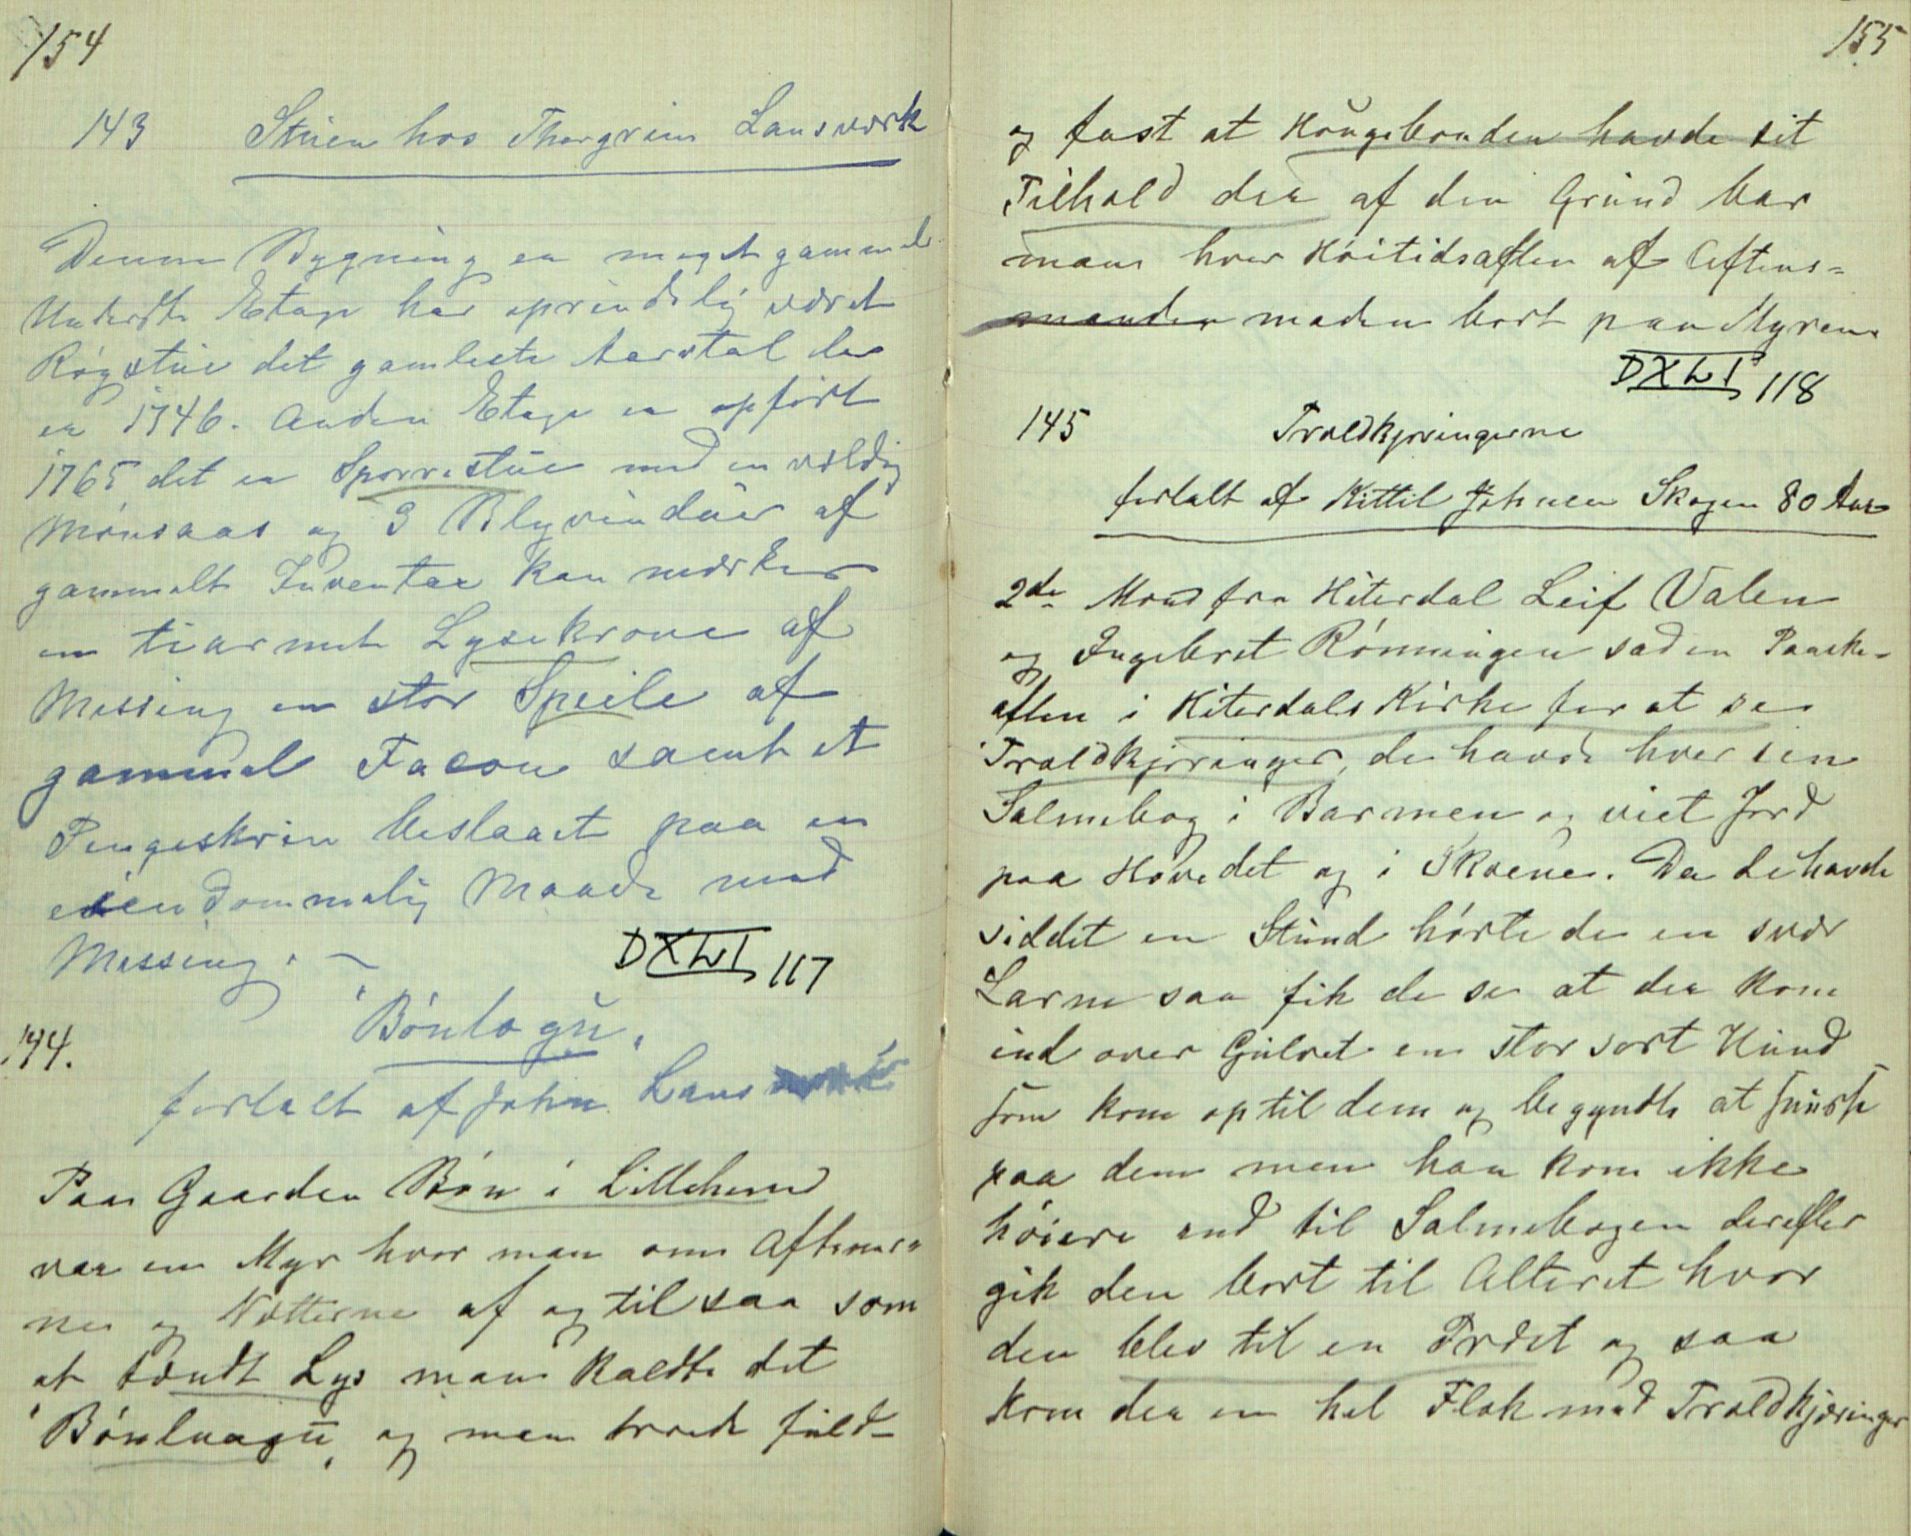 154
143 Stuen hos Thorgrim Lansverk
Denne Bygning er meget gammel
Underste Etage har oprindelig været
Røgstue det gamleste Aarstal der
er 1746. Anden Etage er opført
1765 det er Sporrestue med en vældig
Mønsaas og 3 Blyvinduer af
gammelt Inventar kan mærkes
en tiarmet Lysekrone af
Messing en stor Speile af
gammel Facon samt et
Pengeskrin beslaaet paa en
eiendommelig Maade med
Messing. –
DXLI 117
144. "Bønlogu"
fortalt af John Lans
Paa Gaarden Bøn i Lilleherred
var en Myr hvor man om Aftener-
ne og Nætterne af og til saa som
et tændt Lys man kaldte det
"Bønluagu" og man troede fuld-
155
og fast at Haugebonden havde sit
Tilhold der af den Grund bar
man hver Høitidsaften af Aftens-
manden maden bort paa Myren.
DXLI 118
145 Troldkjæringerne
fortalt af Kittil Johnsen Skogen 80 Aar
2de Mand fra Hiterdal Leif Valen
og Ingebret Rønningen sad en Paaske-
aften i Hiterdals Kirke for at se
Troldkjæringer, de havde hver sin
Salmebog i Barmen og viet Jord
paa Hovedet og i Skoene. Da de havde
siddet en Stund hørte de en svær
Larm saa fik de se at der kom
ind over Gulvet en stor sort Hund
som kom op til dem og begyndte at snuse
paa dem men han kom ikke
høiere end til Salmebogen derefter
gik den bort til Alteret hvor
den blev til en Præst og saa
kom der en hel Flok med Troldkjæringer